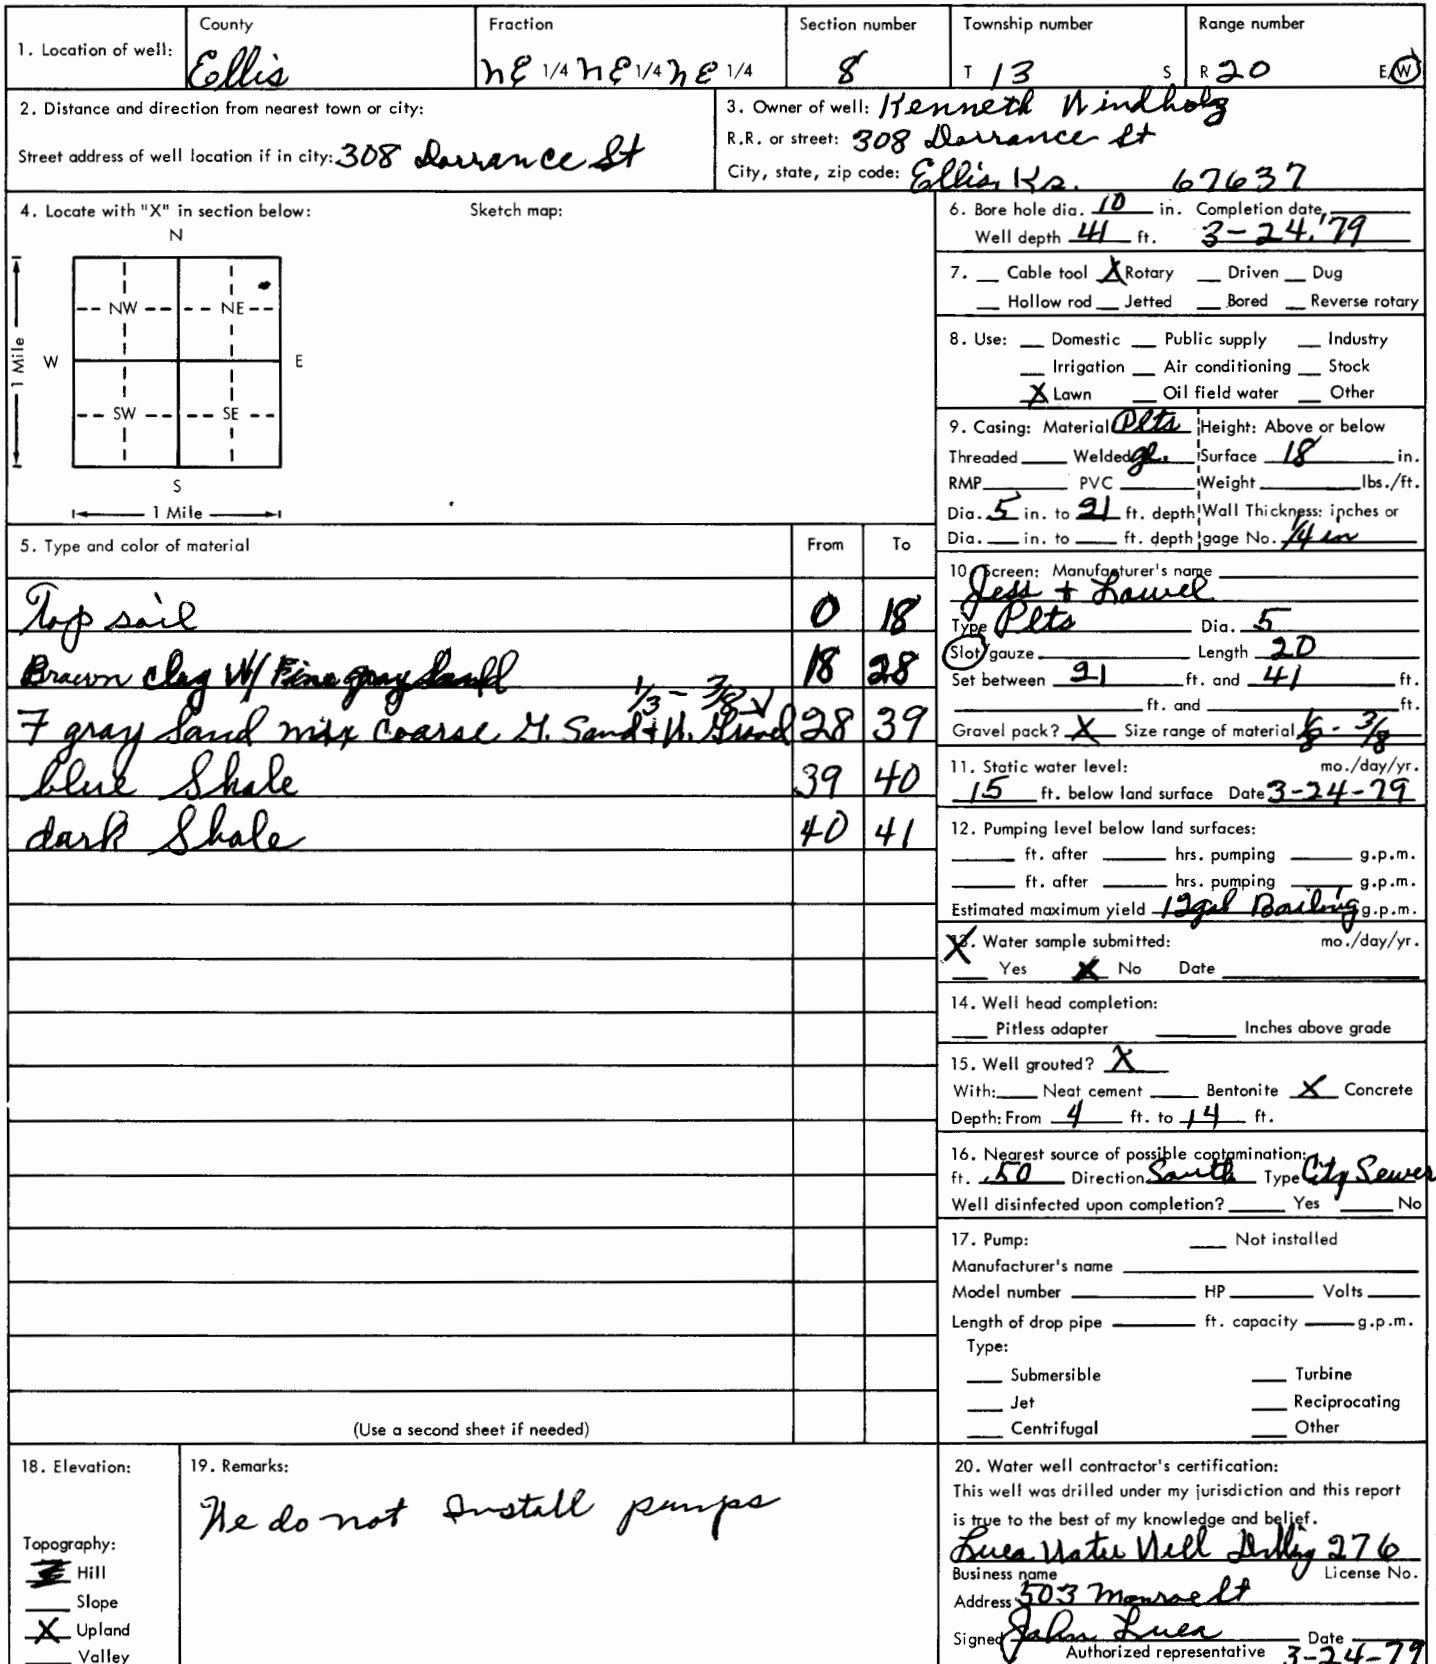 County Fraction Section number Township number Range number
1. Location of well: Ellis NE 1/4 NE 1/4 NE 1/4 8 T 13 S R 20 E/W
2. Distance and direction from nearest town or city:
Street address of well location if in city: 308 Dorrance St
3. Owner of well: Kenneth Windholz
R.R. or street: 308 Dorrance St
City, state, zip code: Ellis, Ks. 67637
4. Locate with "X" in section below: Sketch map:
N
NW NE
W E
1 Mile
SW SE
S
1 Mile
5. Type and color of material From To
Top soil 0 18
Brown clay W/ Fine gray Sand 18 28
1/3 - 3/8
F gray Sand mix coarse G. Sand + W. Gravel 28 39
blue Shale 39 40
dark Shale 40 41
(Use a second sheet if needed)
6. Bore hole dia. 10 in. Completion date
Well depth 41 ft. 3-24-'79
7. Cable tool X Rotary Driven Dug
Hollow rod Jetted Bored Reverse rotary
8. Use: Domestic Public supply Industry
Irrigation Air conditioning Stock
X Lawn Oil field water Other
9. Casing: Material Plts Height: Above or below
Threaded Welded gl. Surface 18 in.
RMP PVC Weight lbs./ft.
Dia. 5 in. to 21 ft. depth Wall Thickness: inches or
Dia. in. to ft. depth gage No. 1/4 in
10. Screen: Manufacturer's name
Jess + Lowel
Type Plts Dia. 5
Slot/gauze Length 20
Set between 21 ft. and 41 ft.
ft. and ft.
Gravel pack? X Size range of material - 3/8
11. Static water level: mo./day/yr.
15 ft. below land surface Date 3-24-79
12. Pumping level below land surfaces:
ft. after hrs. pumping g.p.m.
ft. after hrs. pumping g.p.m.
Estimated maximum yield 12 gal Bailing g.p.m.
X 13. Water sample submitted: mo./day/yr.
Yes X No Date
14. Well head completion:
Pitless adapter Inches above grade
15. Well grouted? X
With: Neat cement Bentonite X Concrete
Depth: From 4 ft. to 14 ft.
16. Nearest source of possible contamination:
ft. 50 Direction South Type City Sewer
Well disinfected upon completion? Yes No
17. Pump: Not installed
Manufacturer's name
Model number HP Volts
Length of drop pipe ft. capacity g.p.m.
Type:
Submersible Turbine
Jet Reciprocating
Centrifugal Other
18. Elevation:
Topography:
Hill
Slope
X Upland
Valley
19. Remarks:
We do not Install pumps
20. Water well contractor's certification:
This well was drilled under my jurisdiction and this report
is true to the best of my knowledge and belief.
Luea Water Well Drilling 276
Business name License No.
Address 503 Monroe St
Signed John Luea Date
Authorized representative 3-24-79